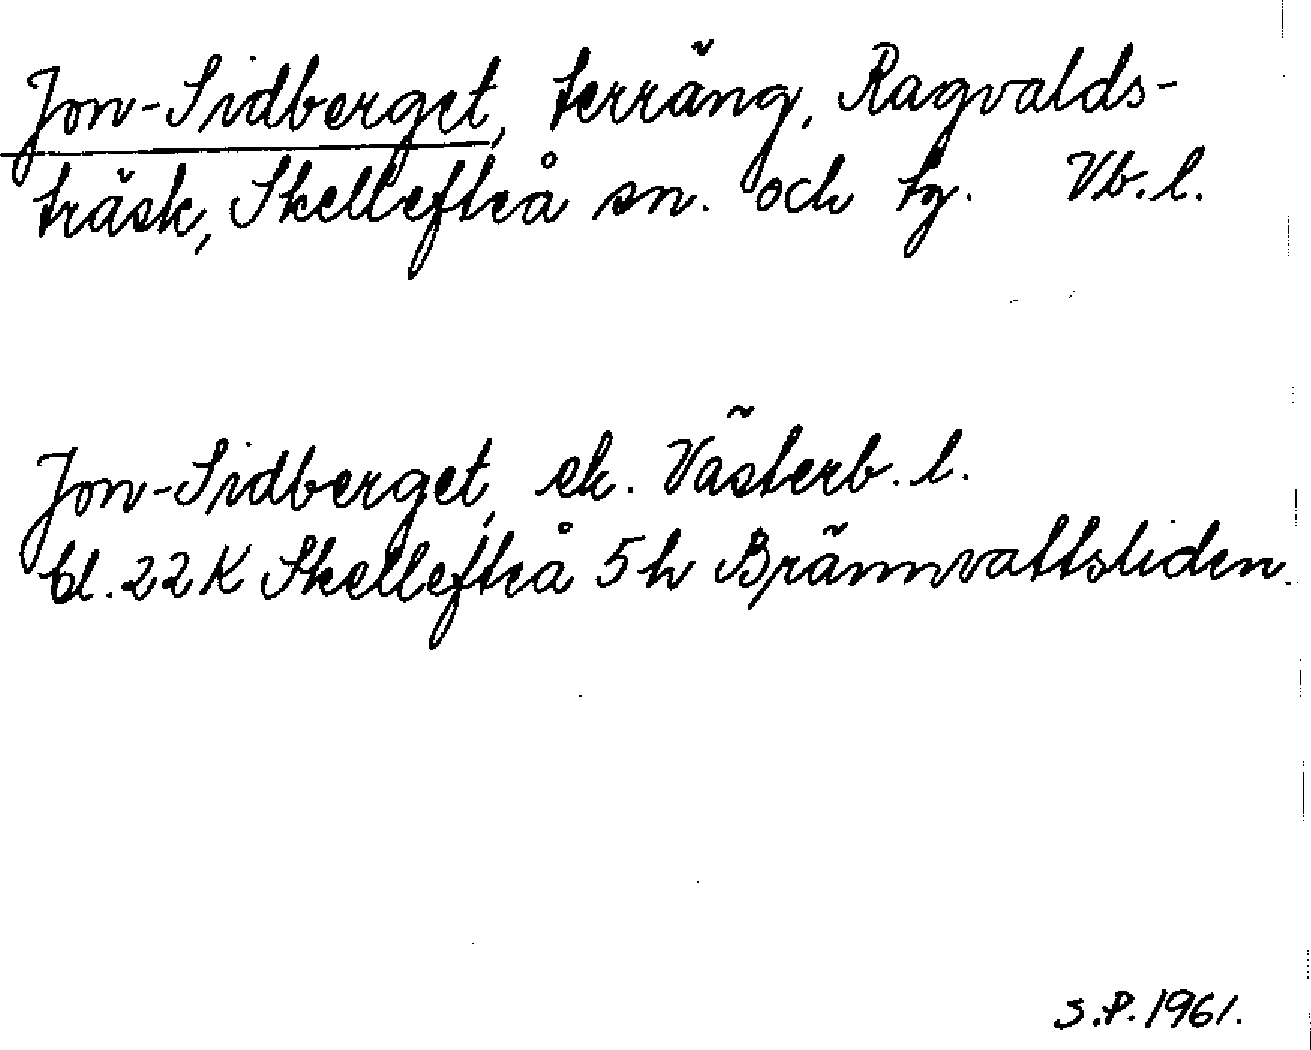 Jon-Sidberget, terräng, Ragvalds-
träsk, Skellefteå sn. och tg. Vb. l.
Jon-Sidberget, ek. Västerb. l.
bl. 22 K Skellefteå 5 h Brännvattsliden.
S.P. 1961.